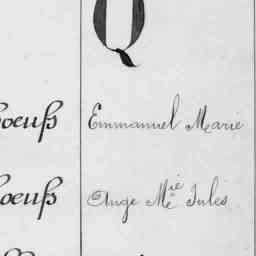 Q
oeufs Emmanuel Marie
oeufs Ange Mie Jules